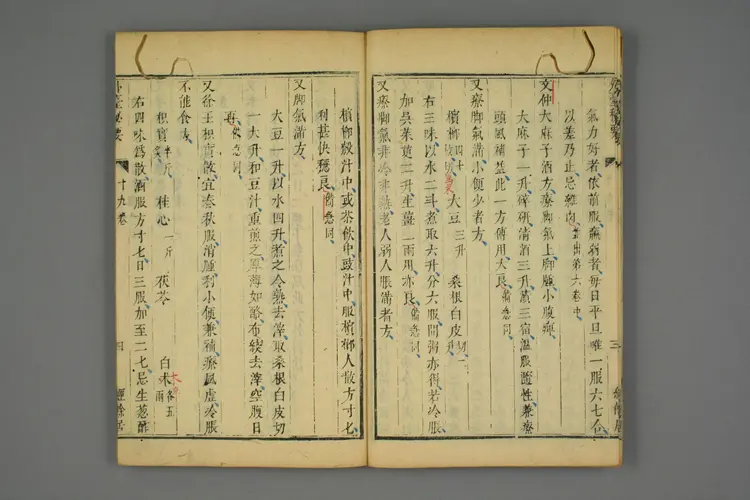 氣力好者依前服羸弱者每日平旦唯一服六七合
以差乃止忌雜肉並出第六卷中
文仲大麻子酒方療脚氣上脚腫小腹痺
大麻子一升碎研清酒三升漬三宿溫服隨性兼療
頭風補益此一方傳用大良備急同
又療脚氣滿小便少者方
檳榔四十枚切 大豆三升 桑根白皮切一升
右三味以水二斗煮取六升分六服間粥亦得若冷脹
加吳茱萸二升生薑一兩用亦良備急同
又療脚氣非冷非熱老人弱人脹滿者方
檳榔殼汁中或茶飲中豉汁中服檳榔人散方寸匕
利甚快穩良備急同
又脚氣滿方
大豆一升以水四升煮之令藥去滓取桑根白皮切
一大升和豆汁重煎之單薄如酪布絞去滓空腹日
再備急同
又徐王枳實散宜春秋服消腫利小便兼補療風虛冷脹
不能食方
枳實半斤炙 桂心一斤 茯苓 白朮各五兩
右四味爲散酒服方寸匕日三服加至二匕忌生葱酢
外臺祕要
十九卷
三
經餘居